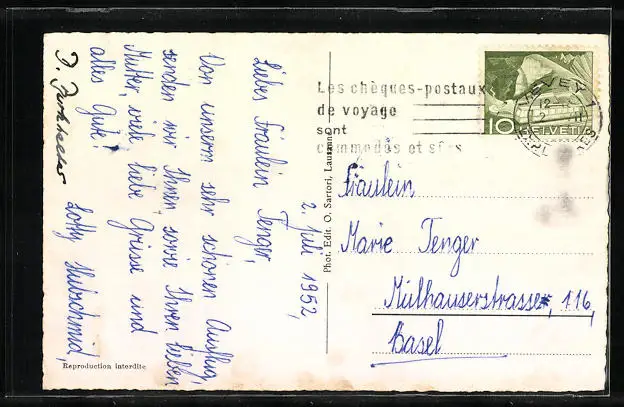 2. Juli 1952,
Liebes Fräulein Tenger,
Von unserm sehr schönen Ausflug,
senden wir Ihnen, sowie Ihrer lieben
Mutter, viele liebe Grüsse und
alles Gute!
Lotty Hubschmid,
Reproduction interdite
Phot. Edit. O. Sartori, Lausanne
Les chèques-postaux
de voyage
sont
commodes et sûrs
VEVEY 1
10
HELVETIA
Fräulein
Marie Tenger
Mülhauserstrasse, 116,
Basel